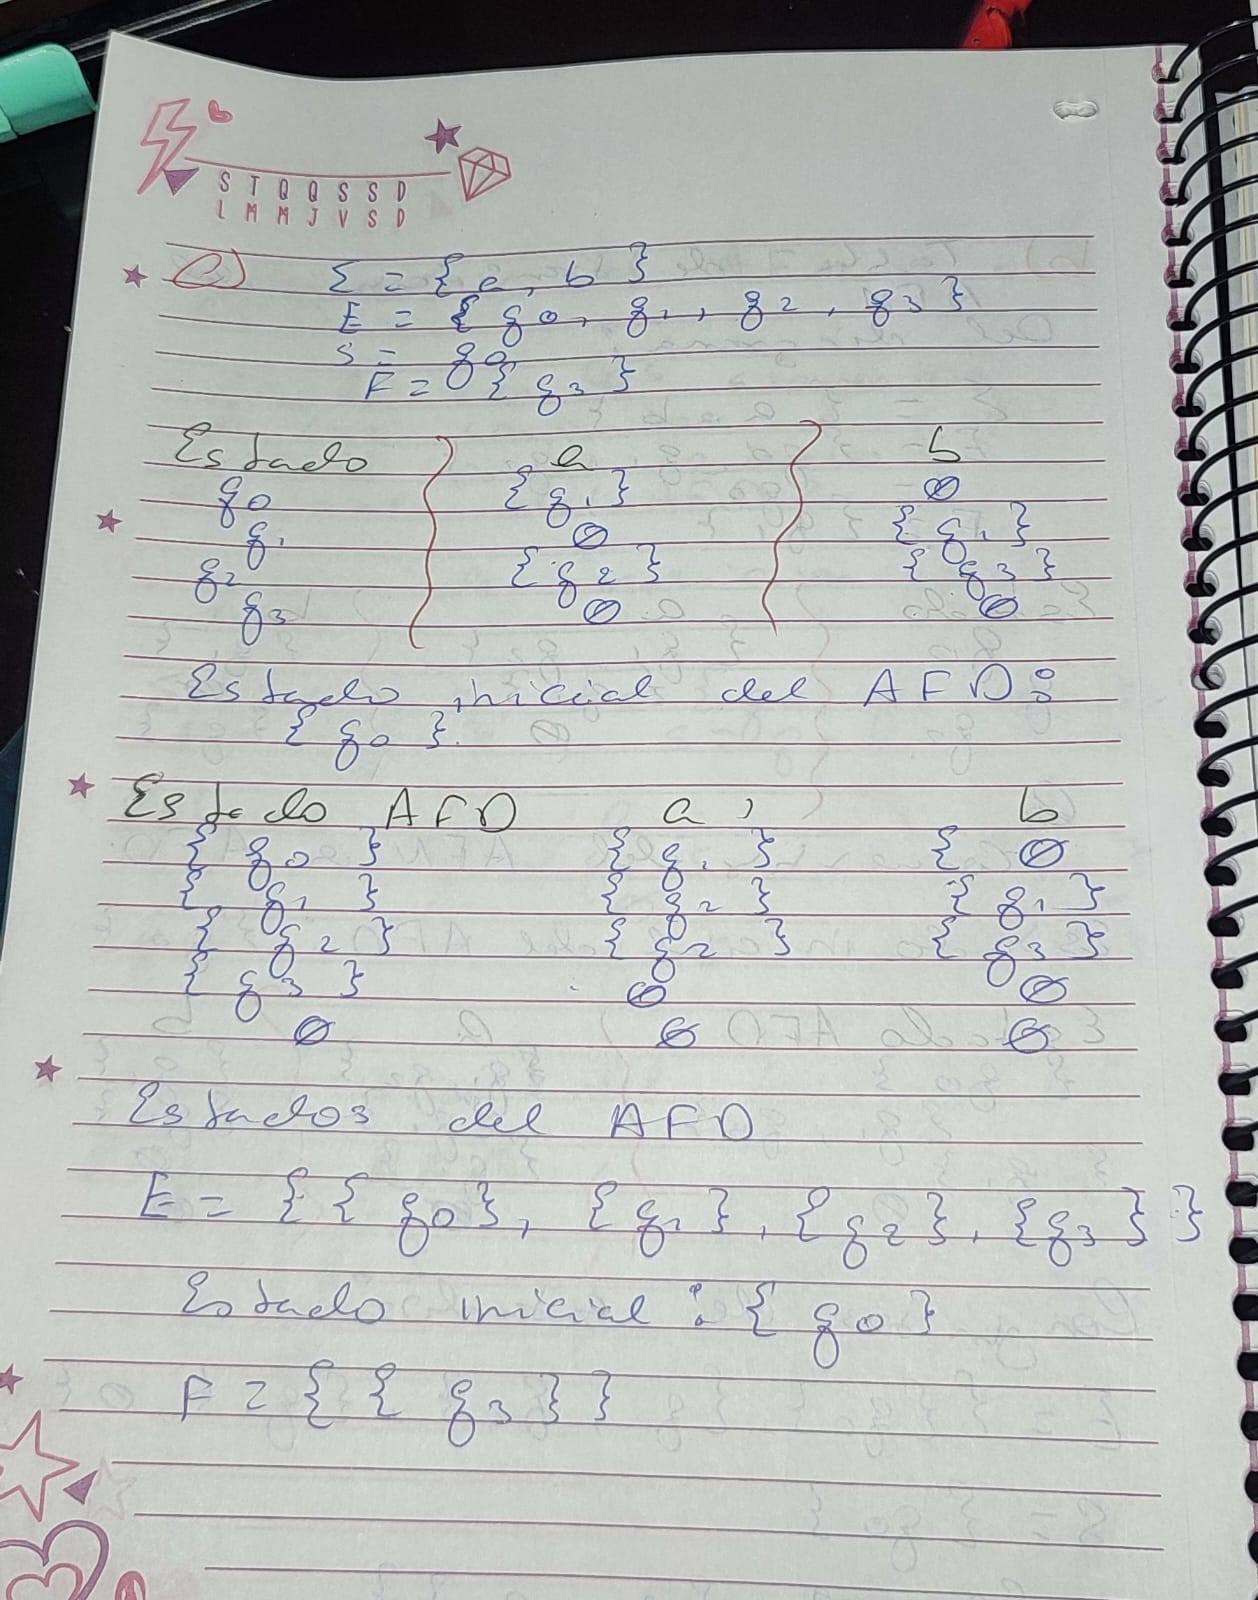 S T Q Q S S D
L M M J V S D
c) Σ = { a, b }
E = { q0, q1, q2, q3 }
S = q0
F = { q3 }
Estado a b
q0 { q1 } ∅
q1 ∅ { q1 }
q2 { q2 } { q3 }
q3 ∅ ∅
Estado inicial del AFD:
{ q0 }.
Estado AFD a, b
{ q0 } { q1 } { ∅
{ q1 } { q2 } { q1 }
{ q2 } { q2 } { q3 }
{ q3 } ∅ ∅
∅ ∅ ∅
Estados del AFD
E = { { q0 }, { q1 }, { q2 }, { q3 } }
Estado inicial : { q0 }
F = { { q3 } }